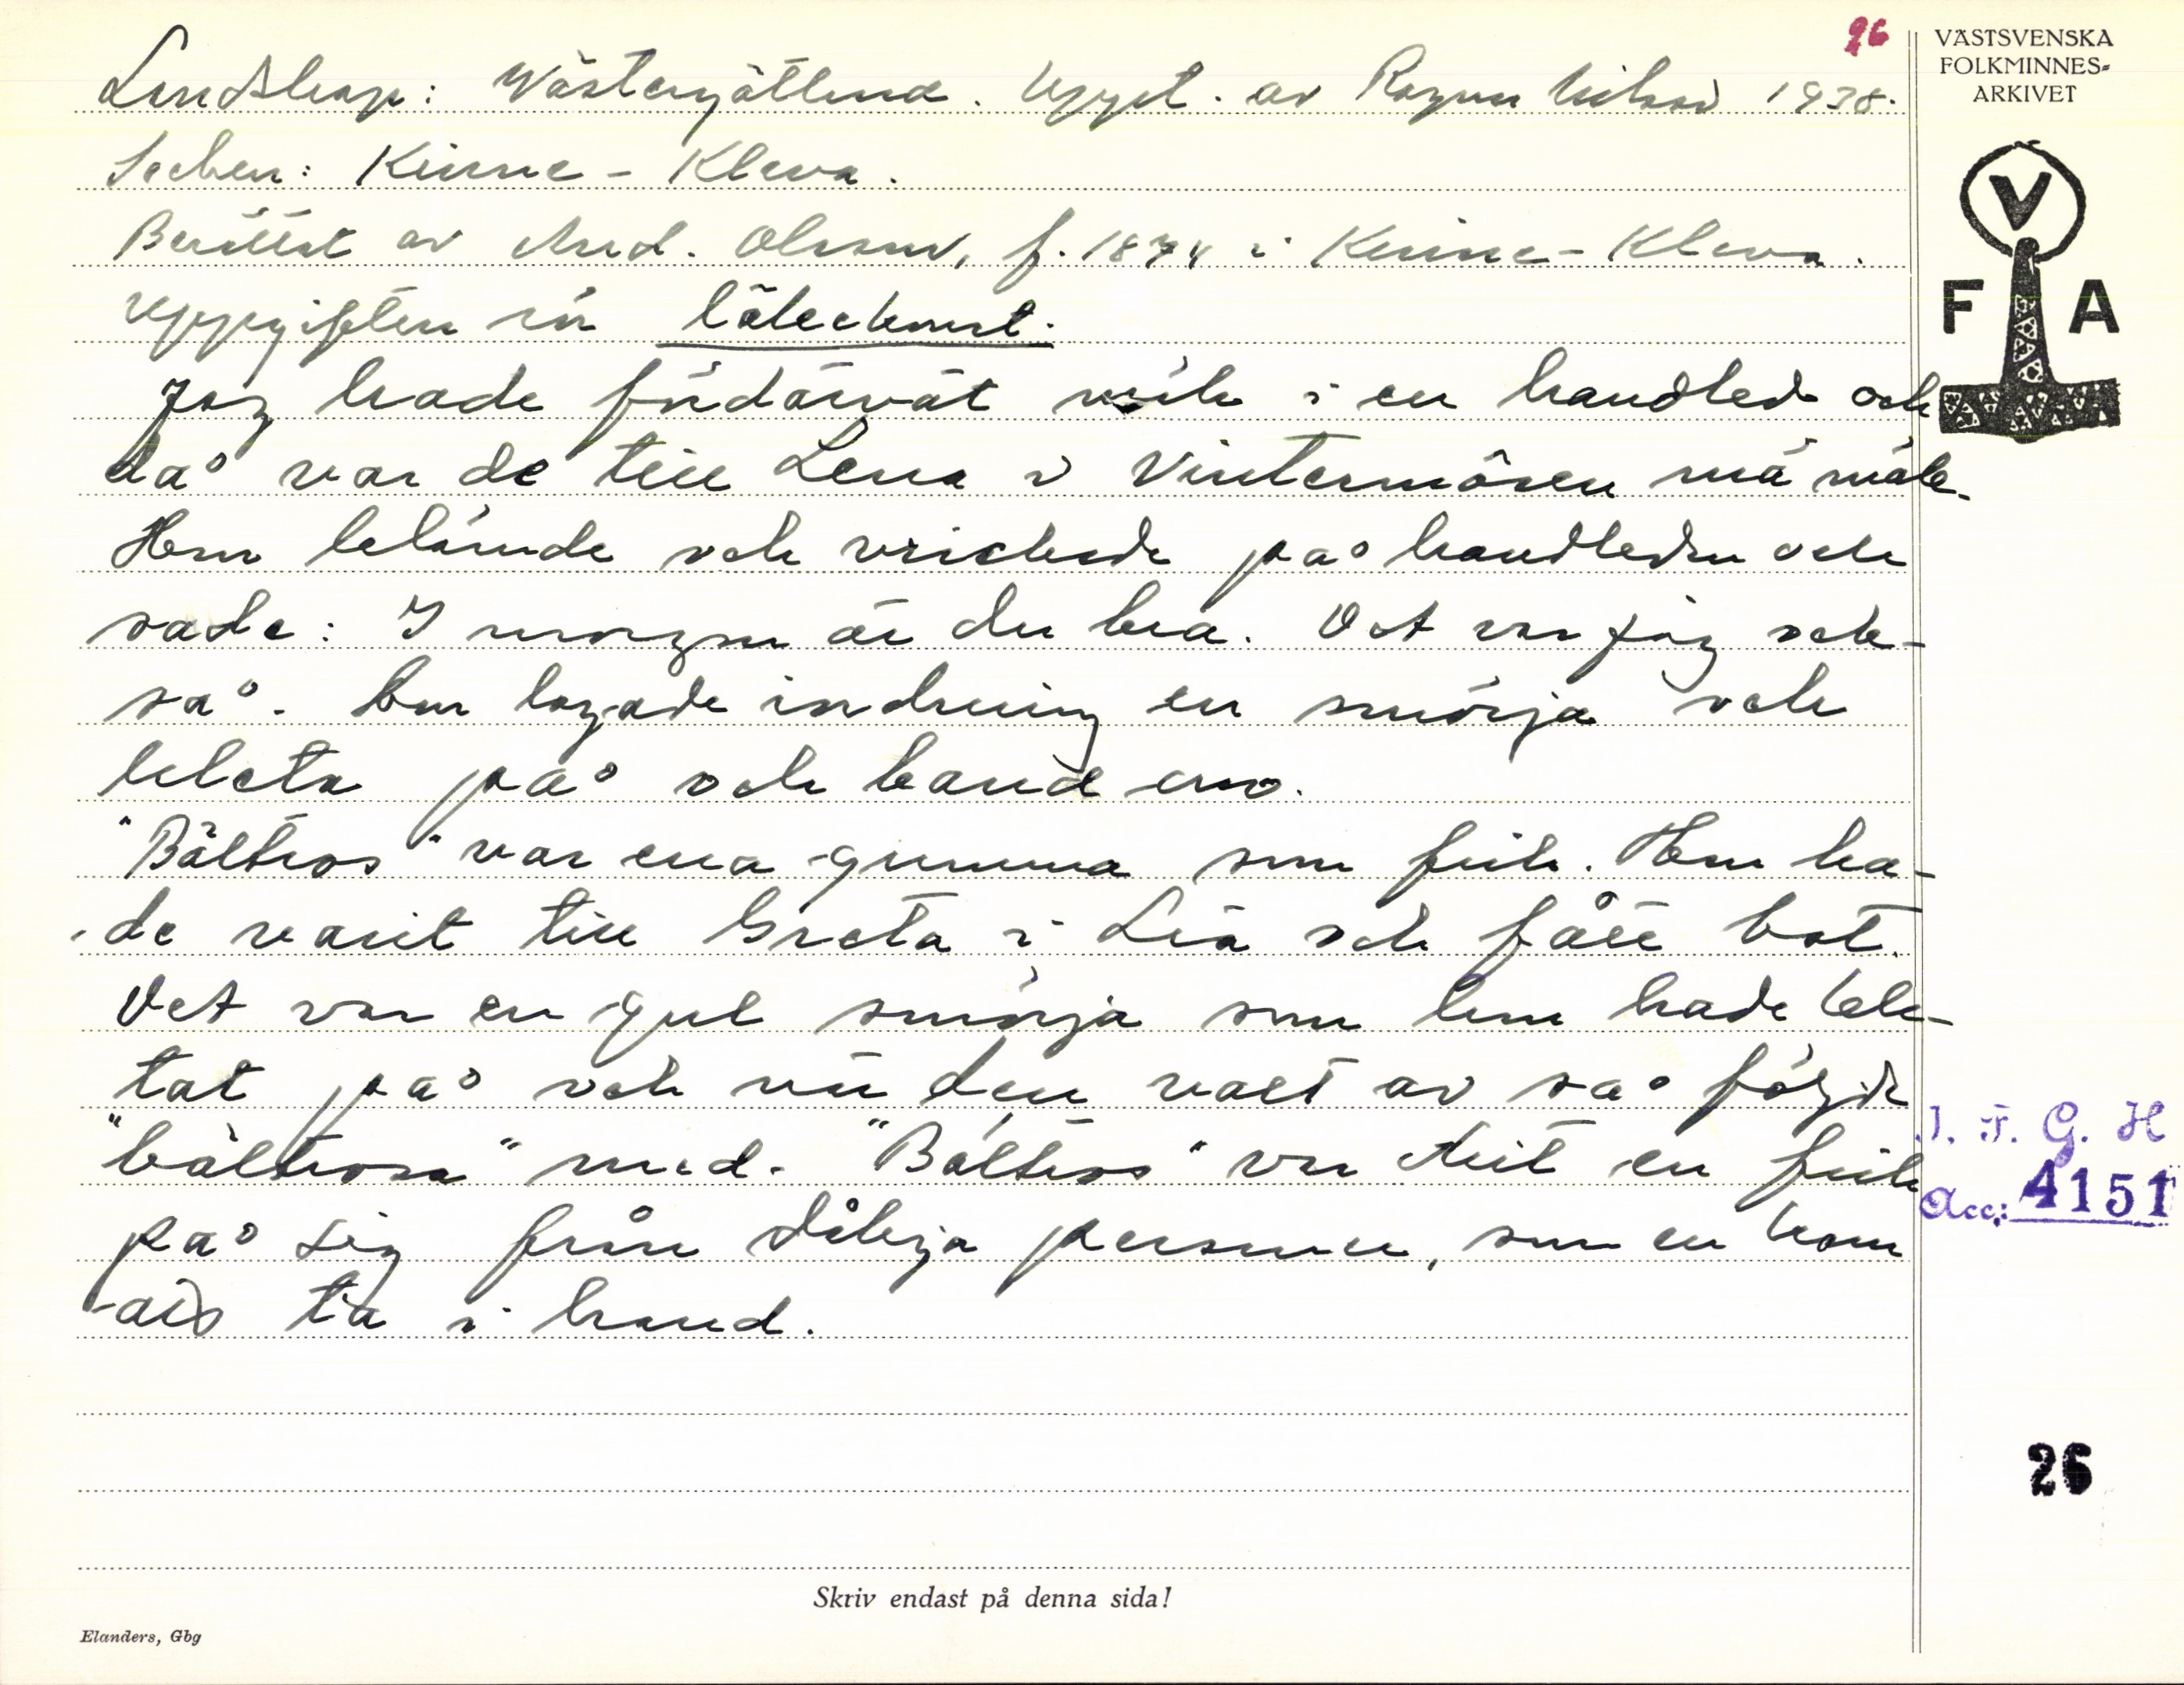 26
Landskap: Västergötland. Uppt. av Ragnar Nilsson 1938.
Socken: Kinne-Kleva.
Berättat av And. Olsson, f. 1874 i Kinne-Kleva.
Uppgiften rör läkekonst.
Jag hade fördärvat mik i en handled och
då var de till Lena i Vintermåsen må mäk.
Hon kände och vrickade på handleden och
sade: I morgon är du bra. Det var jag ock-
så. Hon lagade indruing en smörja och
kleta på och band om.
"Bältros" var ena gumma som fick. Hon ha-
de varit till Greta i Lia och fått bot.
Det var en gul smörja som hon hade kle-
tat på och när den vart av så följde
"bältrosa" med. "Bältros" var dät en fick
på sig från dåliga personer, som en kom
ått ta i hand.
VÄSTSVENSKA
FOLKMINNES-
ARKIVET
V
F A
I. F. G. H
Acc: 4151
26
Skriv endast på denna sida!
Elanders, Gbg